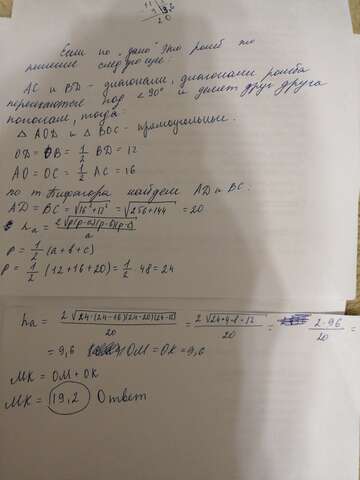 9,6
20
Если по "дано" это ромб то
решение следующее:
AC и BD - диагонали, диагонали ромба
пересекаются под ∠90° и делят друг друга
пополам, тогда:
△ AOD и △ BOC - прямоугольные.
OD = OB = 1/2 BD = 12
AO = OC = 1/2 AC = 16
по т. Пифагора найдем AD и BC:
AD = BC = √16²+12² = √256+144 = 20
ha = 2√p(p-a)(p-b)(p-c) / a
p = 1/2 (a+b+c)
p = 1/2 (12+16+20) = 1/2 · 48 = 24
ha = 2√24·(24-16)(24-20)(24-12) / 20 = 2√24·4·8·12 / 20 = 2·96 / 20 =
= 9,6 OM = OK = 9,6
MK = OM + OK
MK = 19,2 Ответ